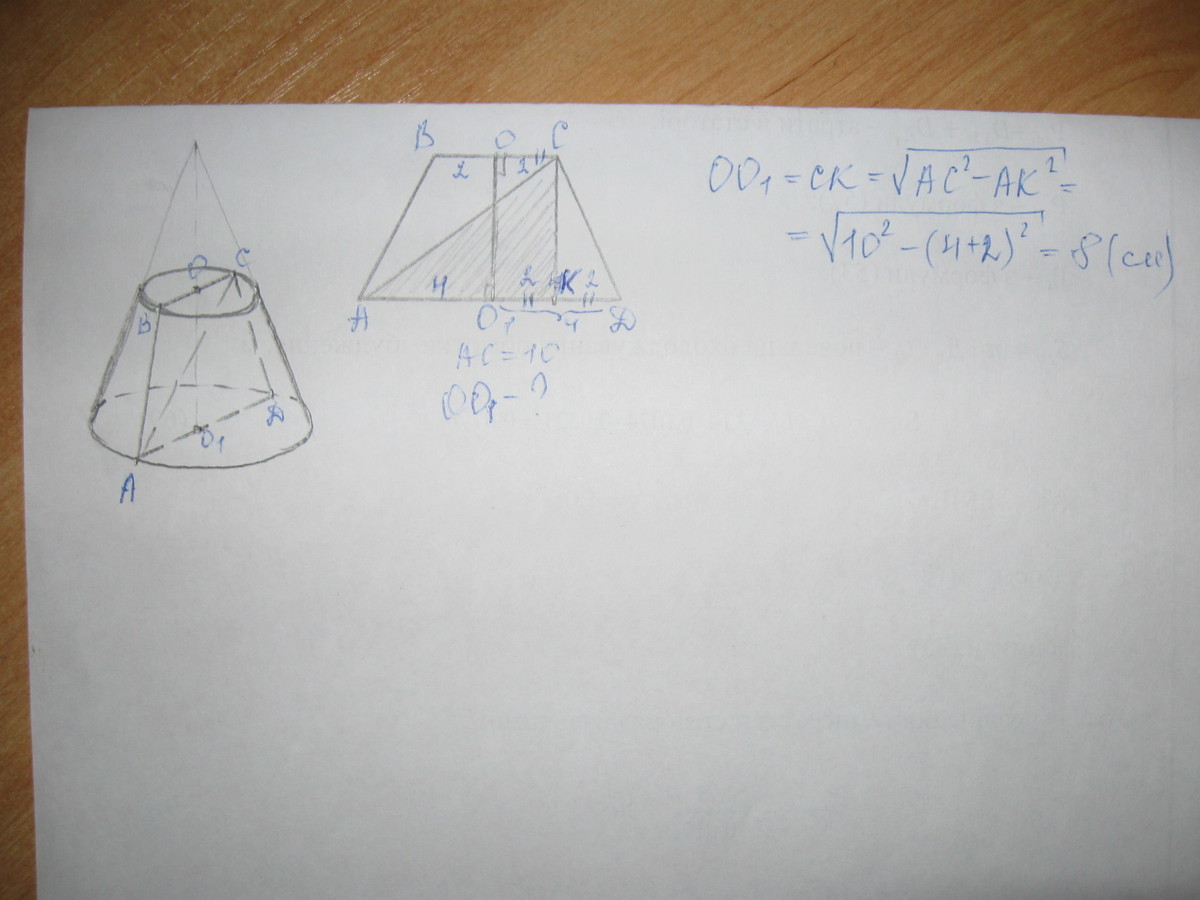 O
C
B
D
O₁
A
B O C
2 2
4 2 K 2
A O₁ 4 D
AC = 10
OO₁ - ?
OO₁ = CK = √AC² - AK² =
= √10² - (4+2)² = 8 (см)